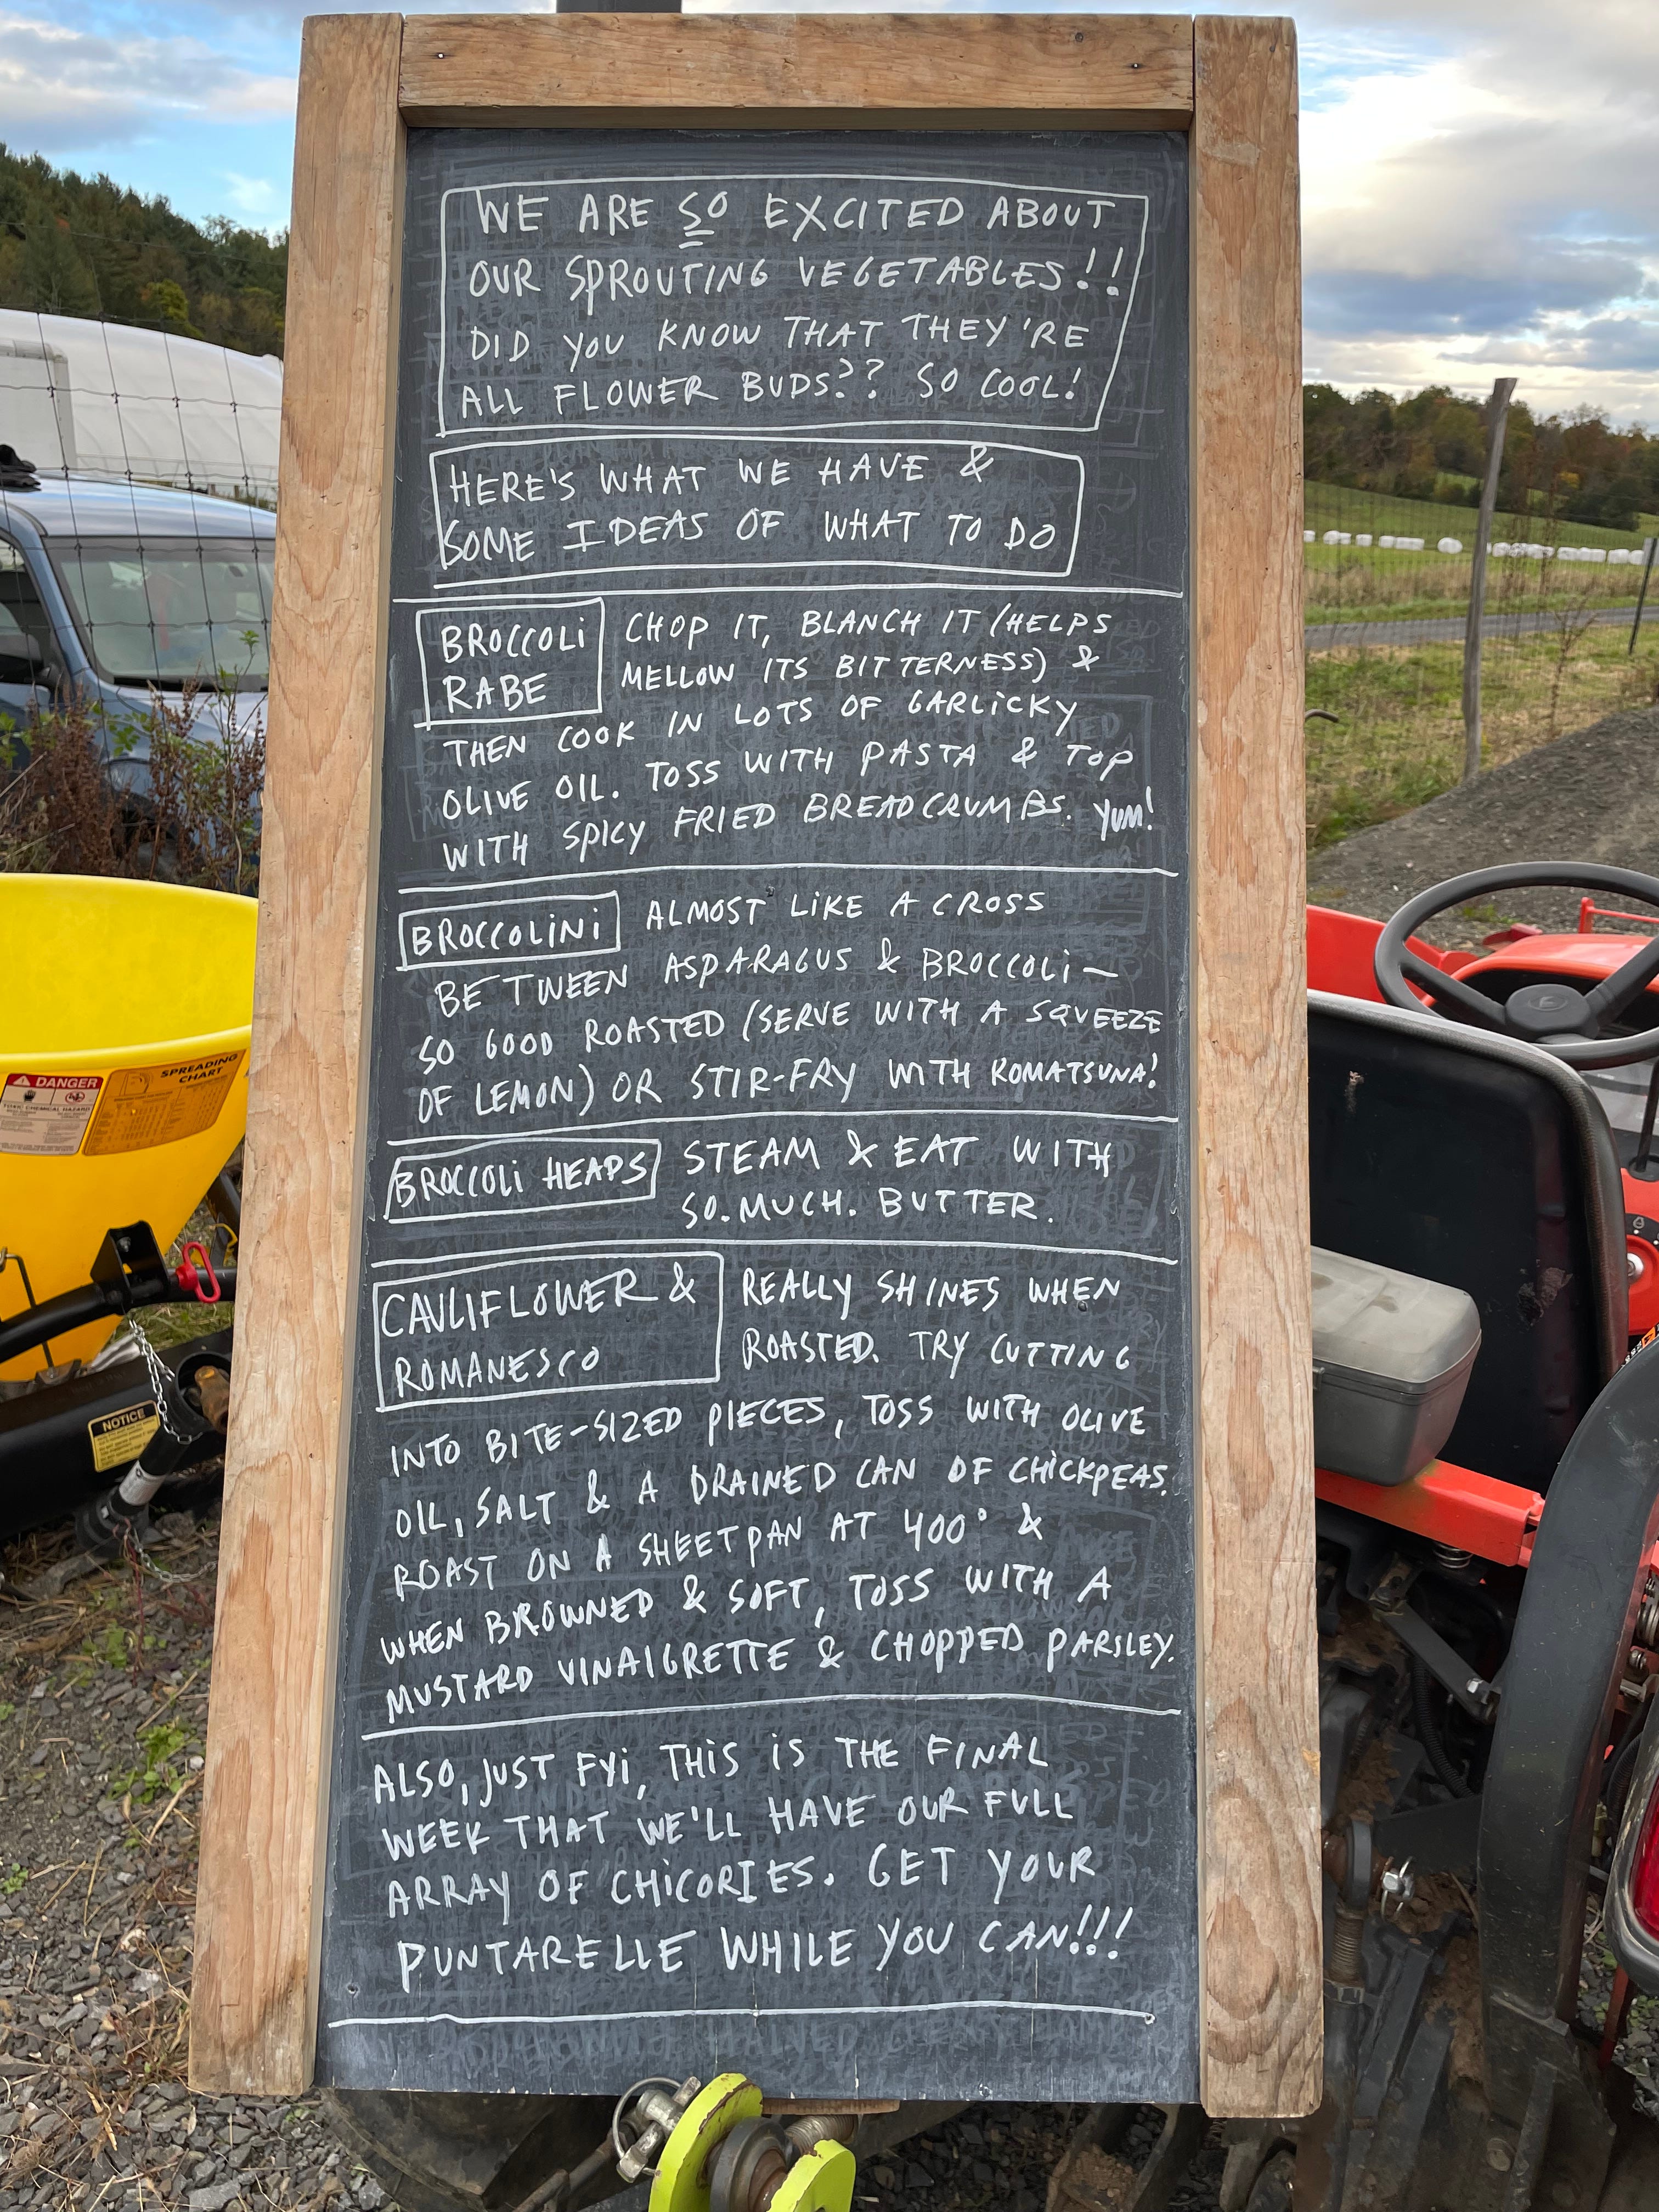 WE ARE SO EXCITED ABOUT
OUR SPROUTING VEGETABLES!!
DID YOU KNOW THAT THEY'RE
ALL FLOWER BUDS?? SO COOL!
HERE'S WHAT WE HAVE &
SOME IDEAS OF WHAT TO DO
BROCCOLi
RABE
CHOP IT, BLANCH IT (HELPS
MELLOW ITS BITTERNESS) &
THEN COOK IN LOTS OF GARLICKY
OLIVE OIL. TOSS WITH PASTA & TOP
WITH SPICY FRIED BREADCRUMBS. YUM!
BROCCOLiNi
ALMOST LiKE A CROSS
BETWEEN ASPARAGUS & BROCCOLi—
SO GOOD ROASTED (SERVE WITH A SQUEEZE
OF LEMON) OR STIR-FRY WITH KOMATSUNA!
BROCCOLi HEAPS
STEAM & EAT WITH
SO. MUCH. BUTTER.
CAULIFLOWER &
ROMANESCO
REALLY SHINES WHEN
ROASTED. TRY CUTTING
INTO BITE-SIZED PIECES, TOSS WITH OLIVE
OIL, SALT & A DRAINED CAN OF CHiCKPEAS.
ROAST ON A SHEETPAN AT 400° &
WHEN BROWNED & SOFT, TOSS WITH A
MUSTARD VINAIGRETTE & CHOPPED PARSLEY.
ALSO, JUST FYi, THiS iS THE FINAL
WEEK THAT WE'LL HAVE OUR FULL
ARRAY OF CHiCORIES. GET YOUR
PUNTARELLE WHILE YOU CAN!!!
DANGER
TOXIC CHEMICAL HAZARD
SPREADING
CHART
NOTICE